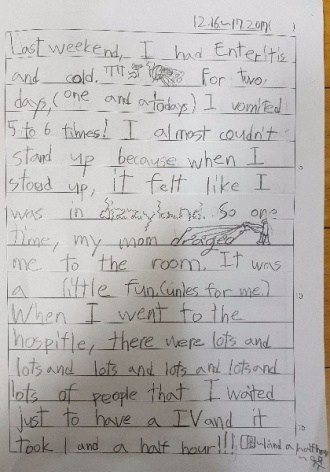 12.16~17.2017( )
Last weekend, I had Enteritis
and cold. ㅠㅠ For two
days, (one and a todays) I vomited
5 to 6 times! I almost coudn't
stand up because when I
stood up, it felt like I
was in dizzy So one
time, my mom draged
me to the room. It was
a little fun. (unles for me.)
When I went to the
hospitle, there were lots and
lots and lots and lots and lotsand
lots of people that I waited
just to have a IV and it
took 1 and a half hour!!!